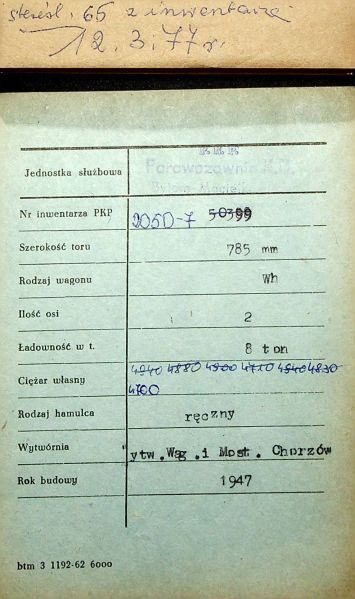 skreśl. 65 z inwentarza
12. 3. 77 r.
P.K.P.
Jednostka służbowa Parowozownia K.D.
Bytom
Nr inwentarza PKP 205D-7 50399
Szerokość toru 785 mm
Rodzaj wagonu Wh
Ilość osi 2
Ładowność w t. 8 ton
4940 4880 4900 4770 4840 4830
Ciężar własny 4700
Rodzaj hamulca ręczny
Wytwórnia ytw. Wąg. i Most. Chorzów
Rok budowy 1947
btm 3 1192-62 6000